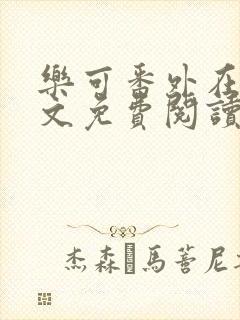 樂可番外在
文免費閱讀
杰森 馬萮尼